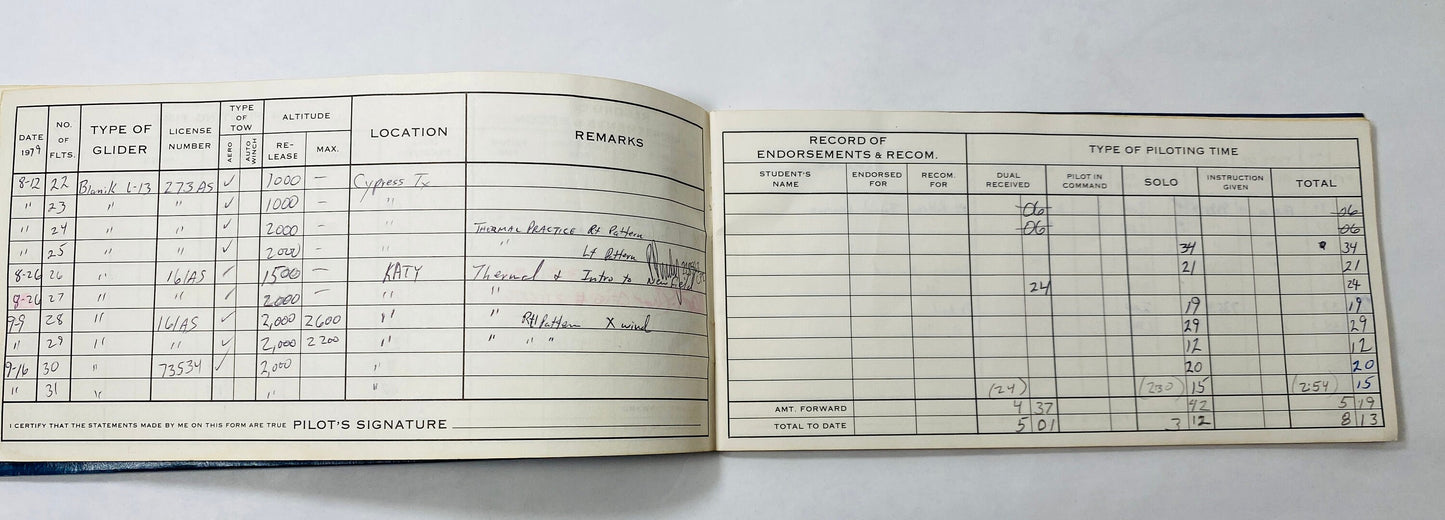 DATE 1979 NO. OF FLTS. TYPE OF GLIDER LICENSE NUMBER TYPE OF TOW AERO AUTO WINCH ALTITUDE RE-LEASE MAX. LOCATION REMARKS
8-12 22 Blanik L-13 273AS ✓ 1000 — Cypress Tx
" 23 " " ✓ 1000 "
" 24 " " ✓ 2000 " THERMAL PRACTICE Rt Pattern
" 25 " " ✓ 2000 " " Lt Pattern
8-26 26 " 161AS ✓ 1500 — KATY Thermal & Intro to New Field
8-26 27 " " ✓ 2000 — " "
9-9 28 " 161AS ✓ 2,000 2600 " " Rt Pattern X wind
" 29 " " ✓ 2,000 2200 " " " "
9-16 30 " 73534 ✓ 2,000 "
" 31 " " "
I CERTIFY THAT THE STATEMENTS MADE BY ME ON THIS FORM ARE TRUE PILOT'S SIGNATURE
RECORD OF ENDORSEMENTS & RECOM. TYPE OF PILOTING TIME
STUDENT'S NAME ENDORSED FOR RECOM. FOR DUAL RECEIVED PILOT IN COMMAND SOLO INSTRUCTION GIVEN TOTAL
06 06
06 06
34 34
21 21
24 24
19 19
29 29
12 12
20 20
(24) (230) 15 (2:54) 15
AMT. FORWARD 4 37 42 5 19
TOTAL TO DATE 5 01 3 12 8 13